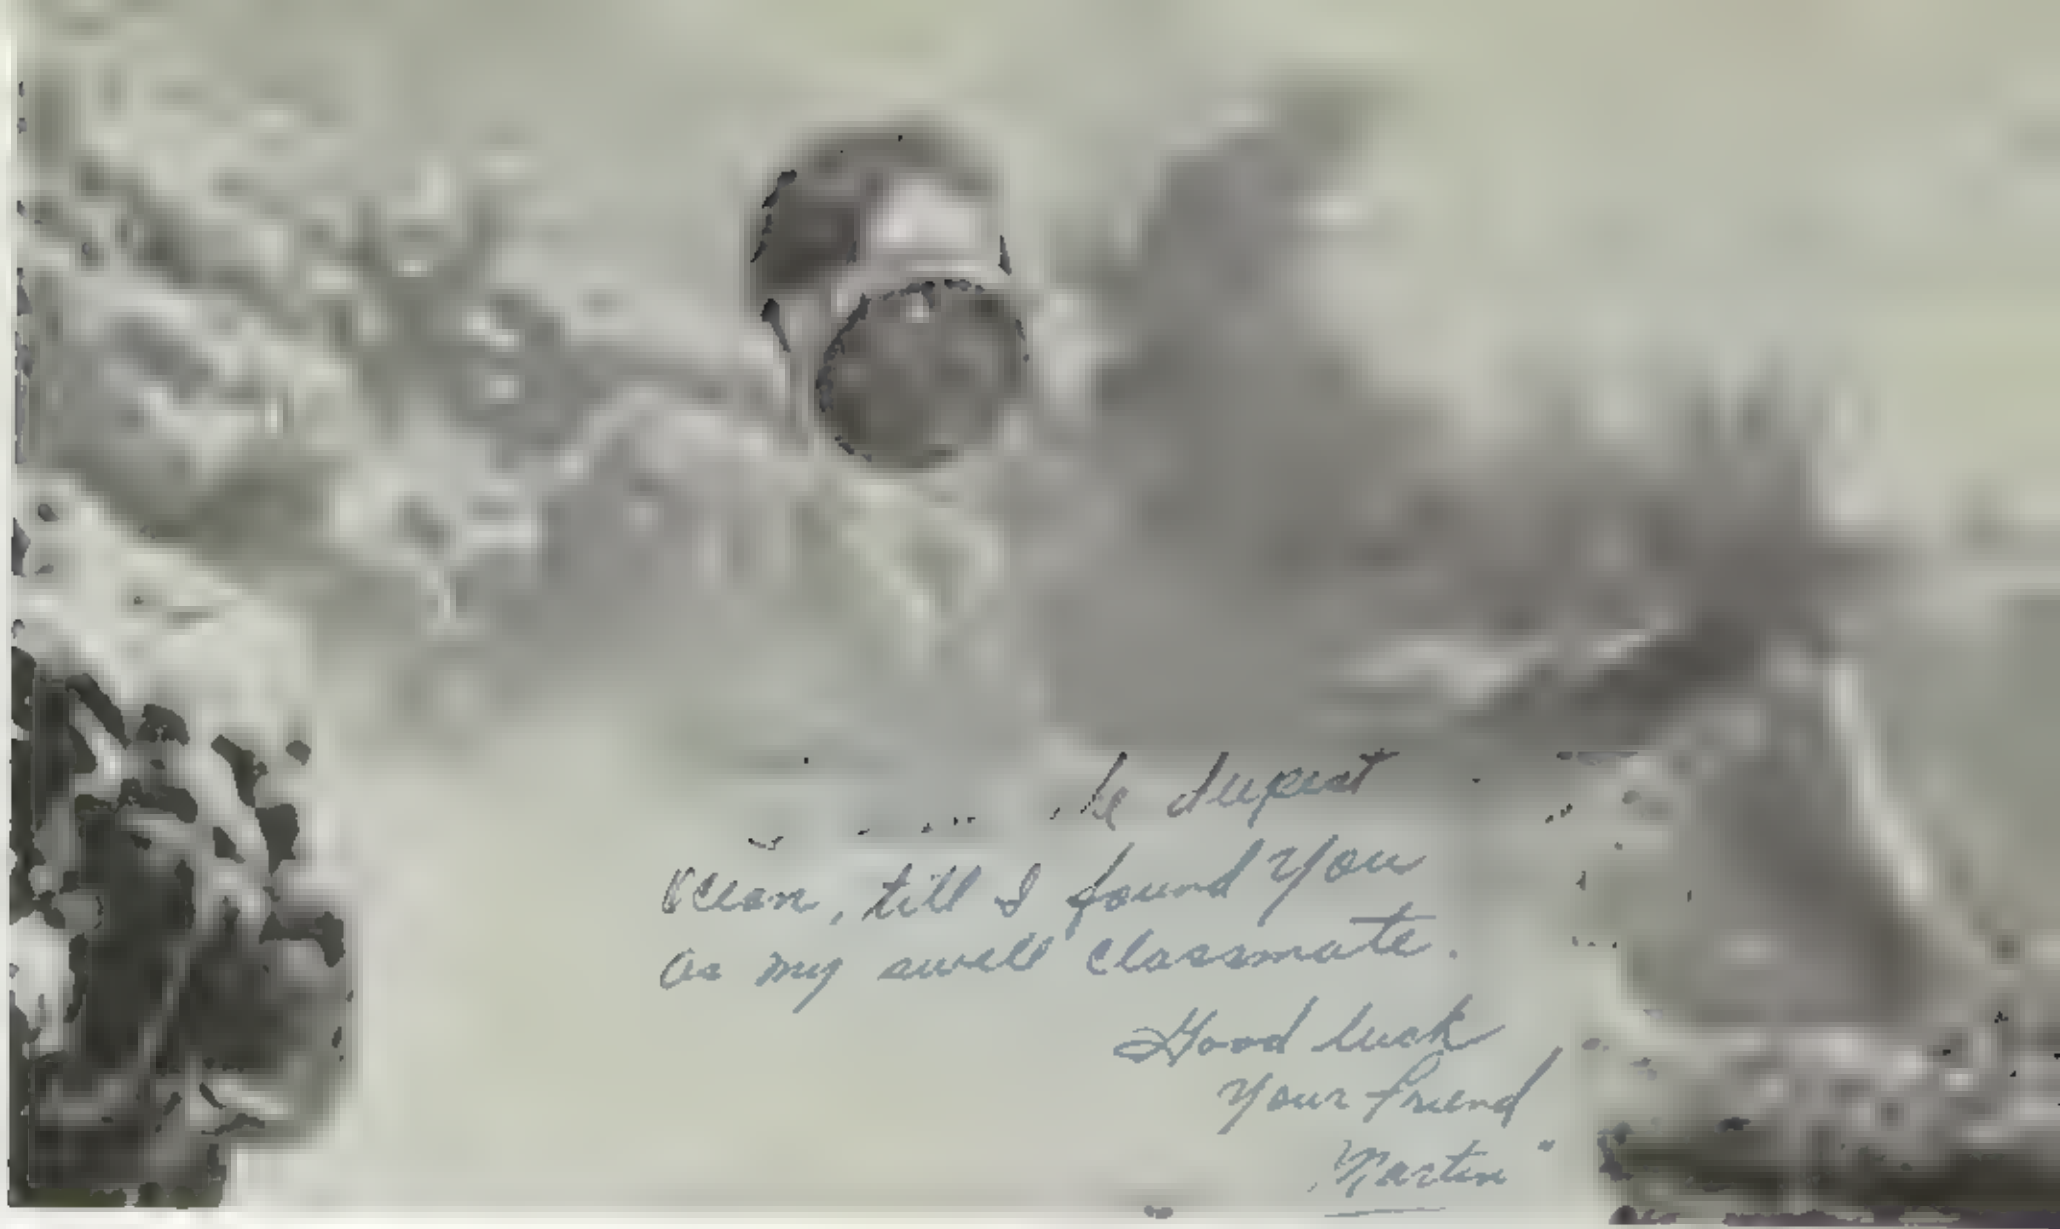 deepest
Ocean, till I found You
as my swell classmate.
Good luck
Your friend
"Martin"